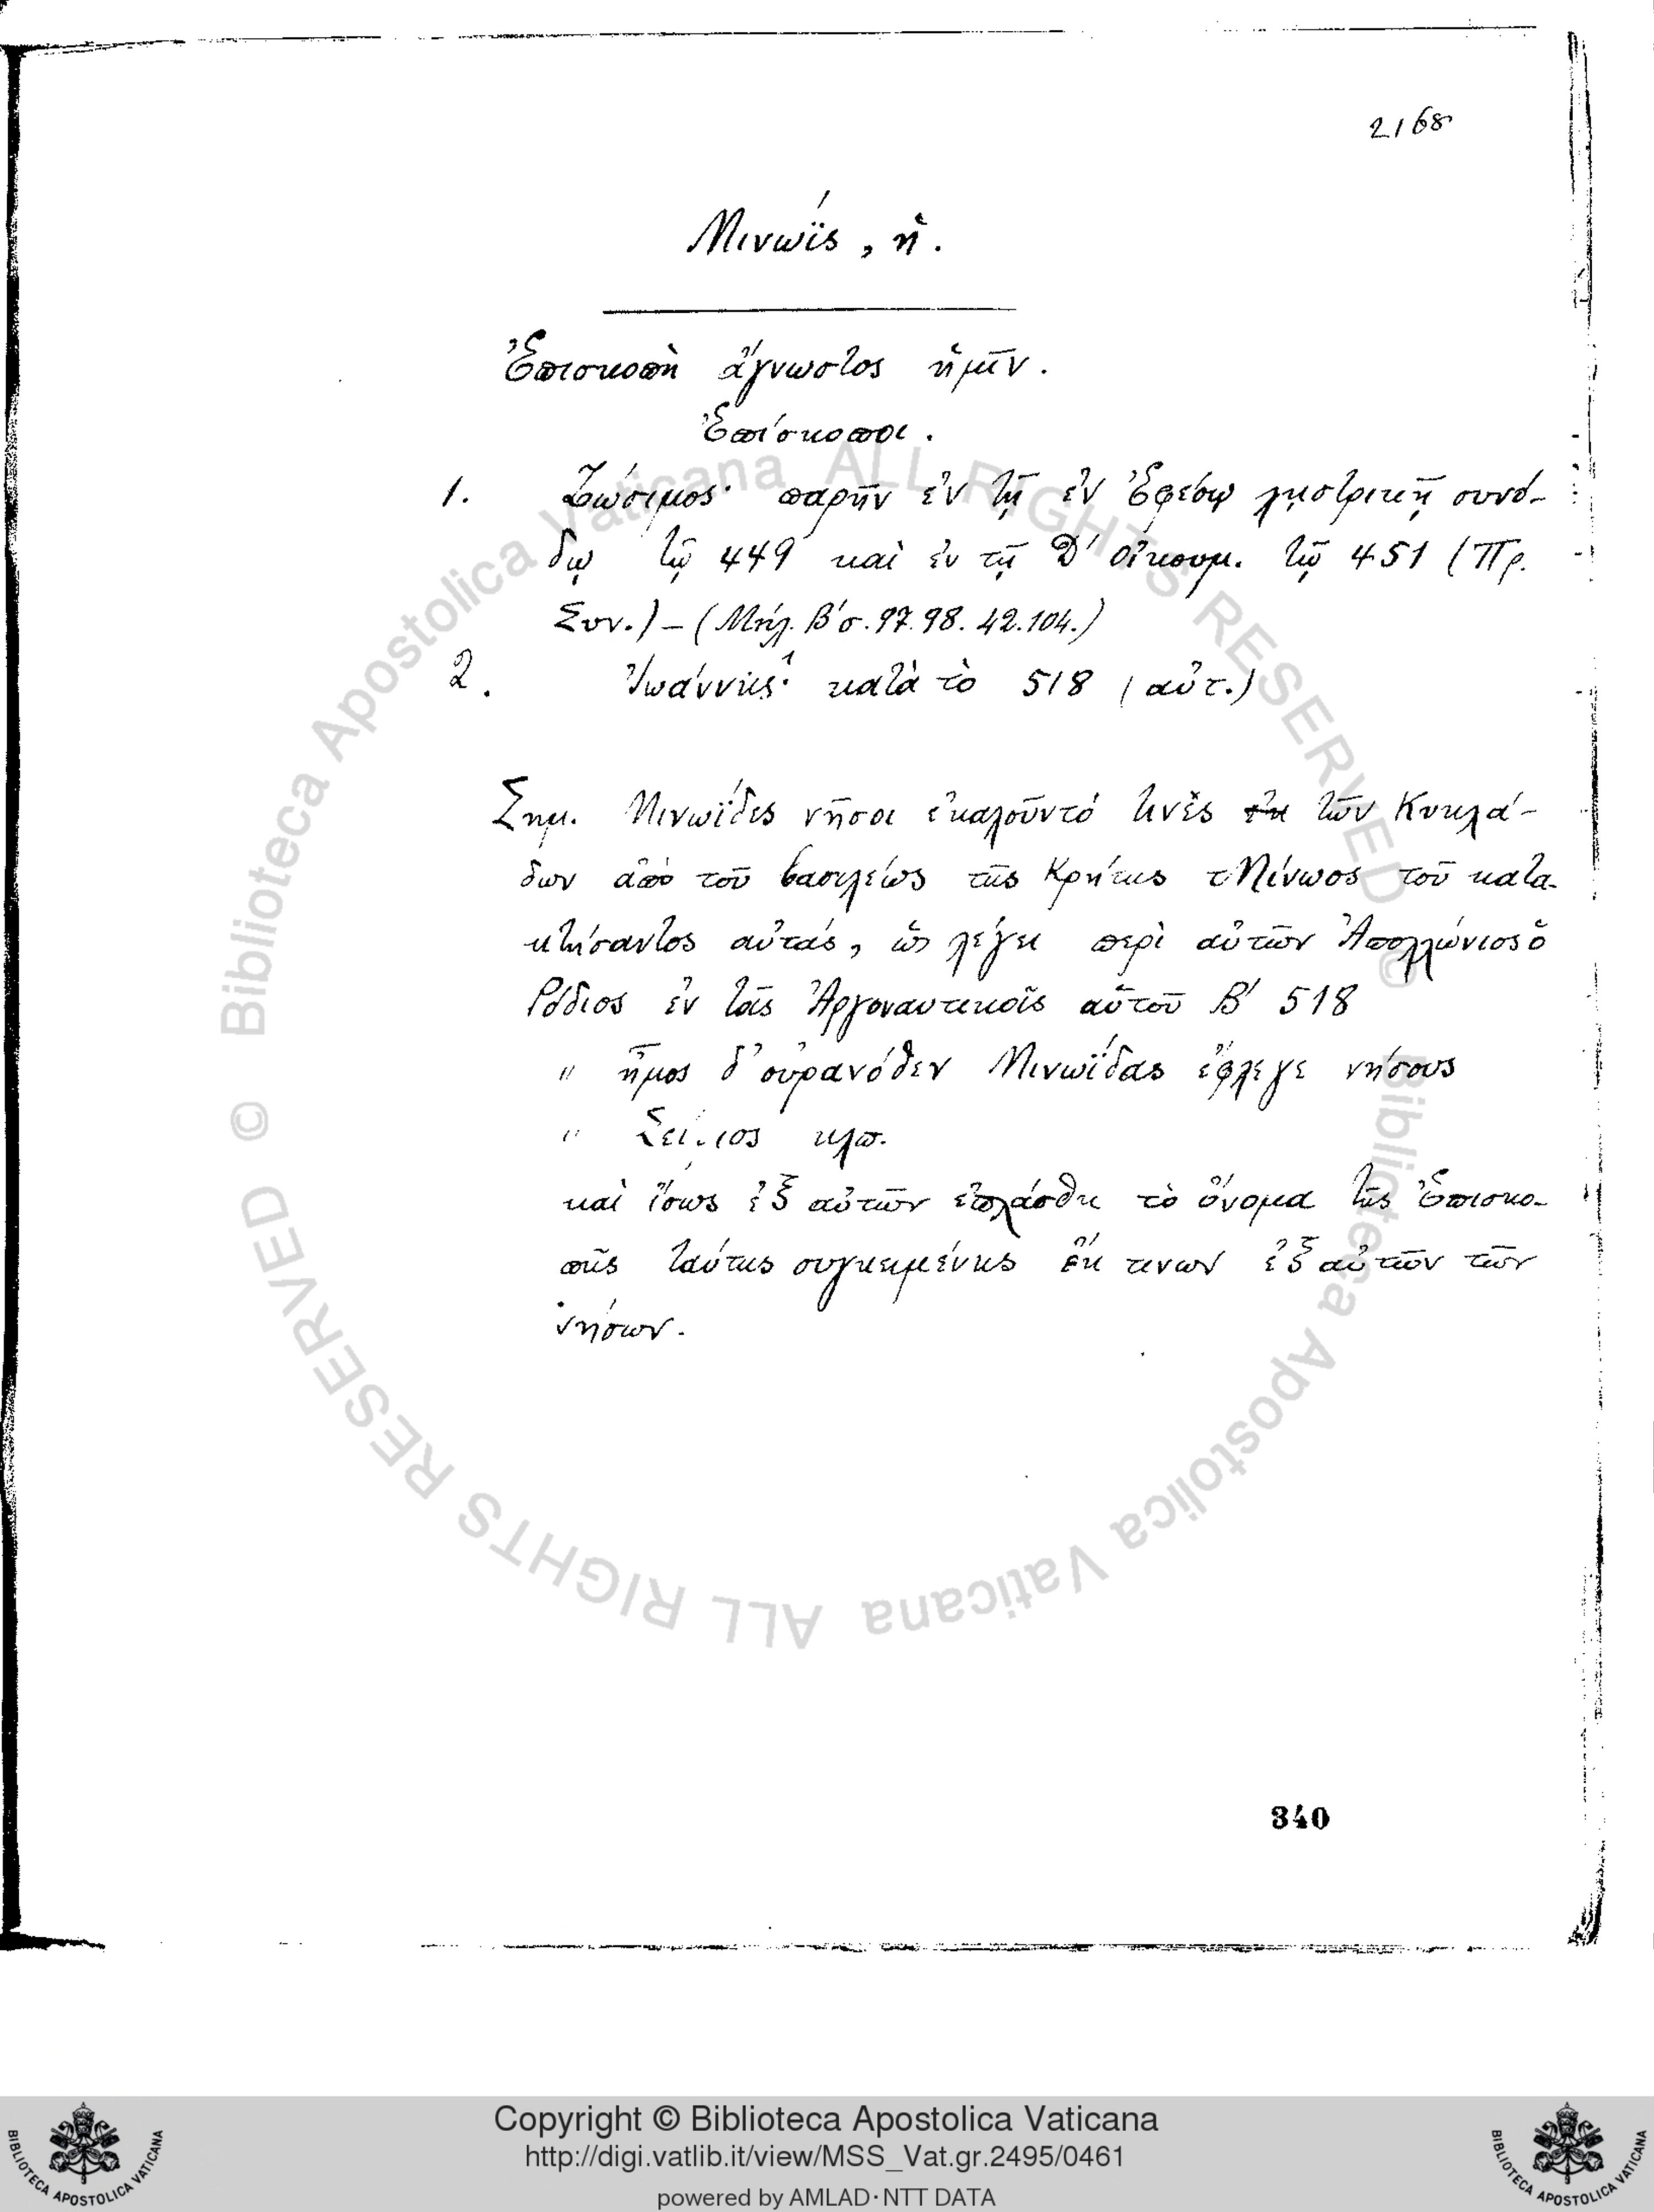 2168
Μινωΐς, ἡ.
Ἐπισκοπὴ ἄγνωστος ἡμῖν.
Ἐπίσκοποι.
1. Ζώσιμος· παρῆν ἐν τῇ ἐν Ἐφέσῳ λῃστρικῇ συνό-
δῳ τῷ 449 καὶ ἐν τῇ Δ' οἰκουμ. τῷ 451 (Πρ.
Συν.) – (Μήλ. Β' σ. 97. 98. 42. 104.)
2. Ἰωάννης· κατὰ τὸ 518 (αὐτ.)
Σημ. Μινωΐδες νῆσοι ἐκαλοῦντό τινὲς ἐκ τῶν Κυκλά-
δων ἀπὸ τοῦ βασιλέως τῆς Κρήτης Μίνωος τοῦ κατα-
κτήσαντος αὐτάς, ὡς λέγει περὶ αὐτῶν Ἀπολλώνιος ὁ
Ρόδιος ἐν τοῖς Ἀργοναυτικοῖς αὐτοῦ Β' 518
" ἦμος δ' οὐρανόθεν Μινωΐδας ἔφλεγε νήσους
" Σείριος κλπ.
καὶ ἴσως ἐξ αὐτῶν ἐπλάσθη τὸ ὄνομα τῆς Ἐπισκο-
πῆς ταύτης συγκειμένης ἔκ τινων ἐξ αὐτῶν τῶν
νήσων.
340
Biblioteca Apostolica Vaticana ALL RIGHTS RESERVED ©
Biblioteca Apostolica Vaticana ALL RIGHTS RESERVED ©
Copyright © Biblioteca Apostolica Vaticana
http://digi.vatlib.it/view/MSS_Vat.gr.2495/0461
powered by AMLAD·NTT DATA
BIBLIOTECA APOSTOLICA VATICANA
BIBLIOTECA APOSTOLICA VATICANA